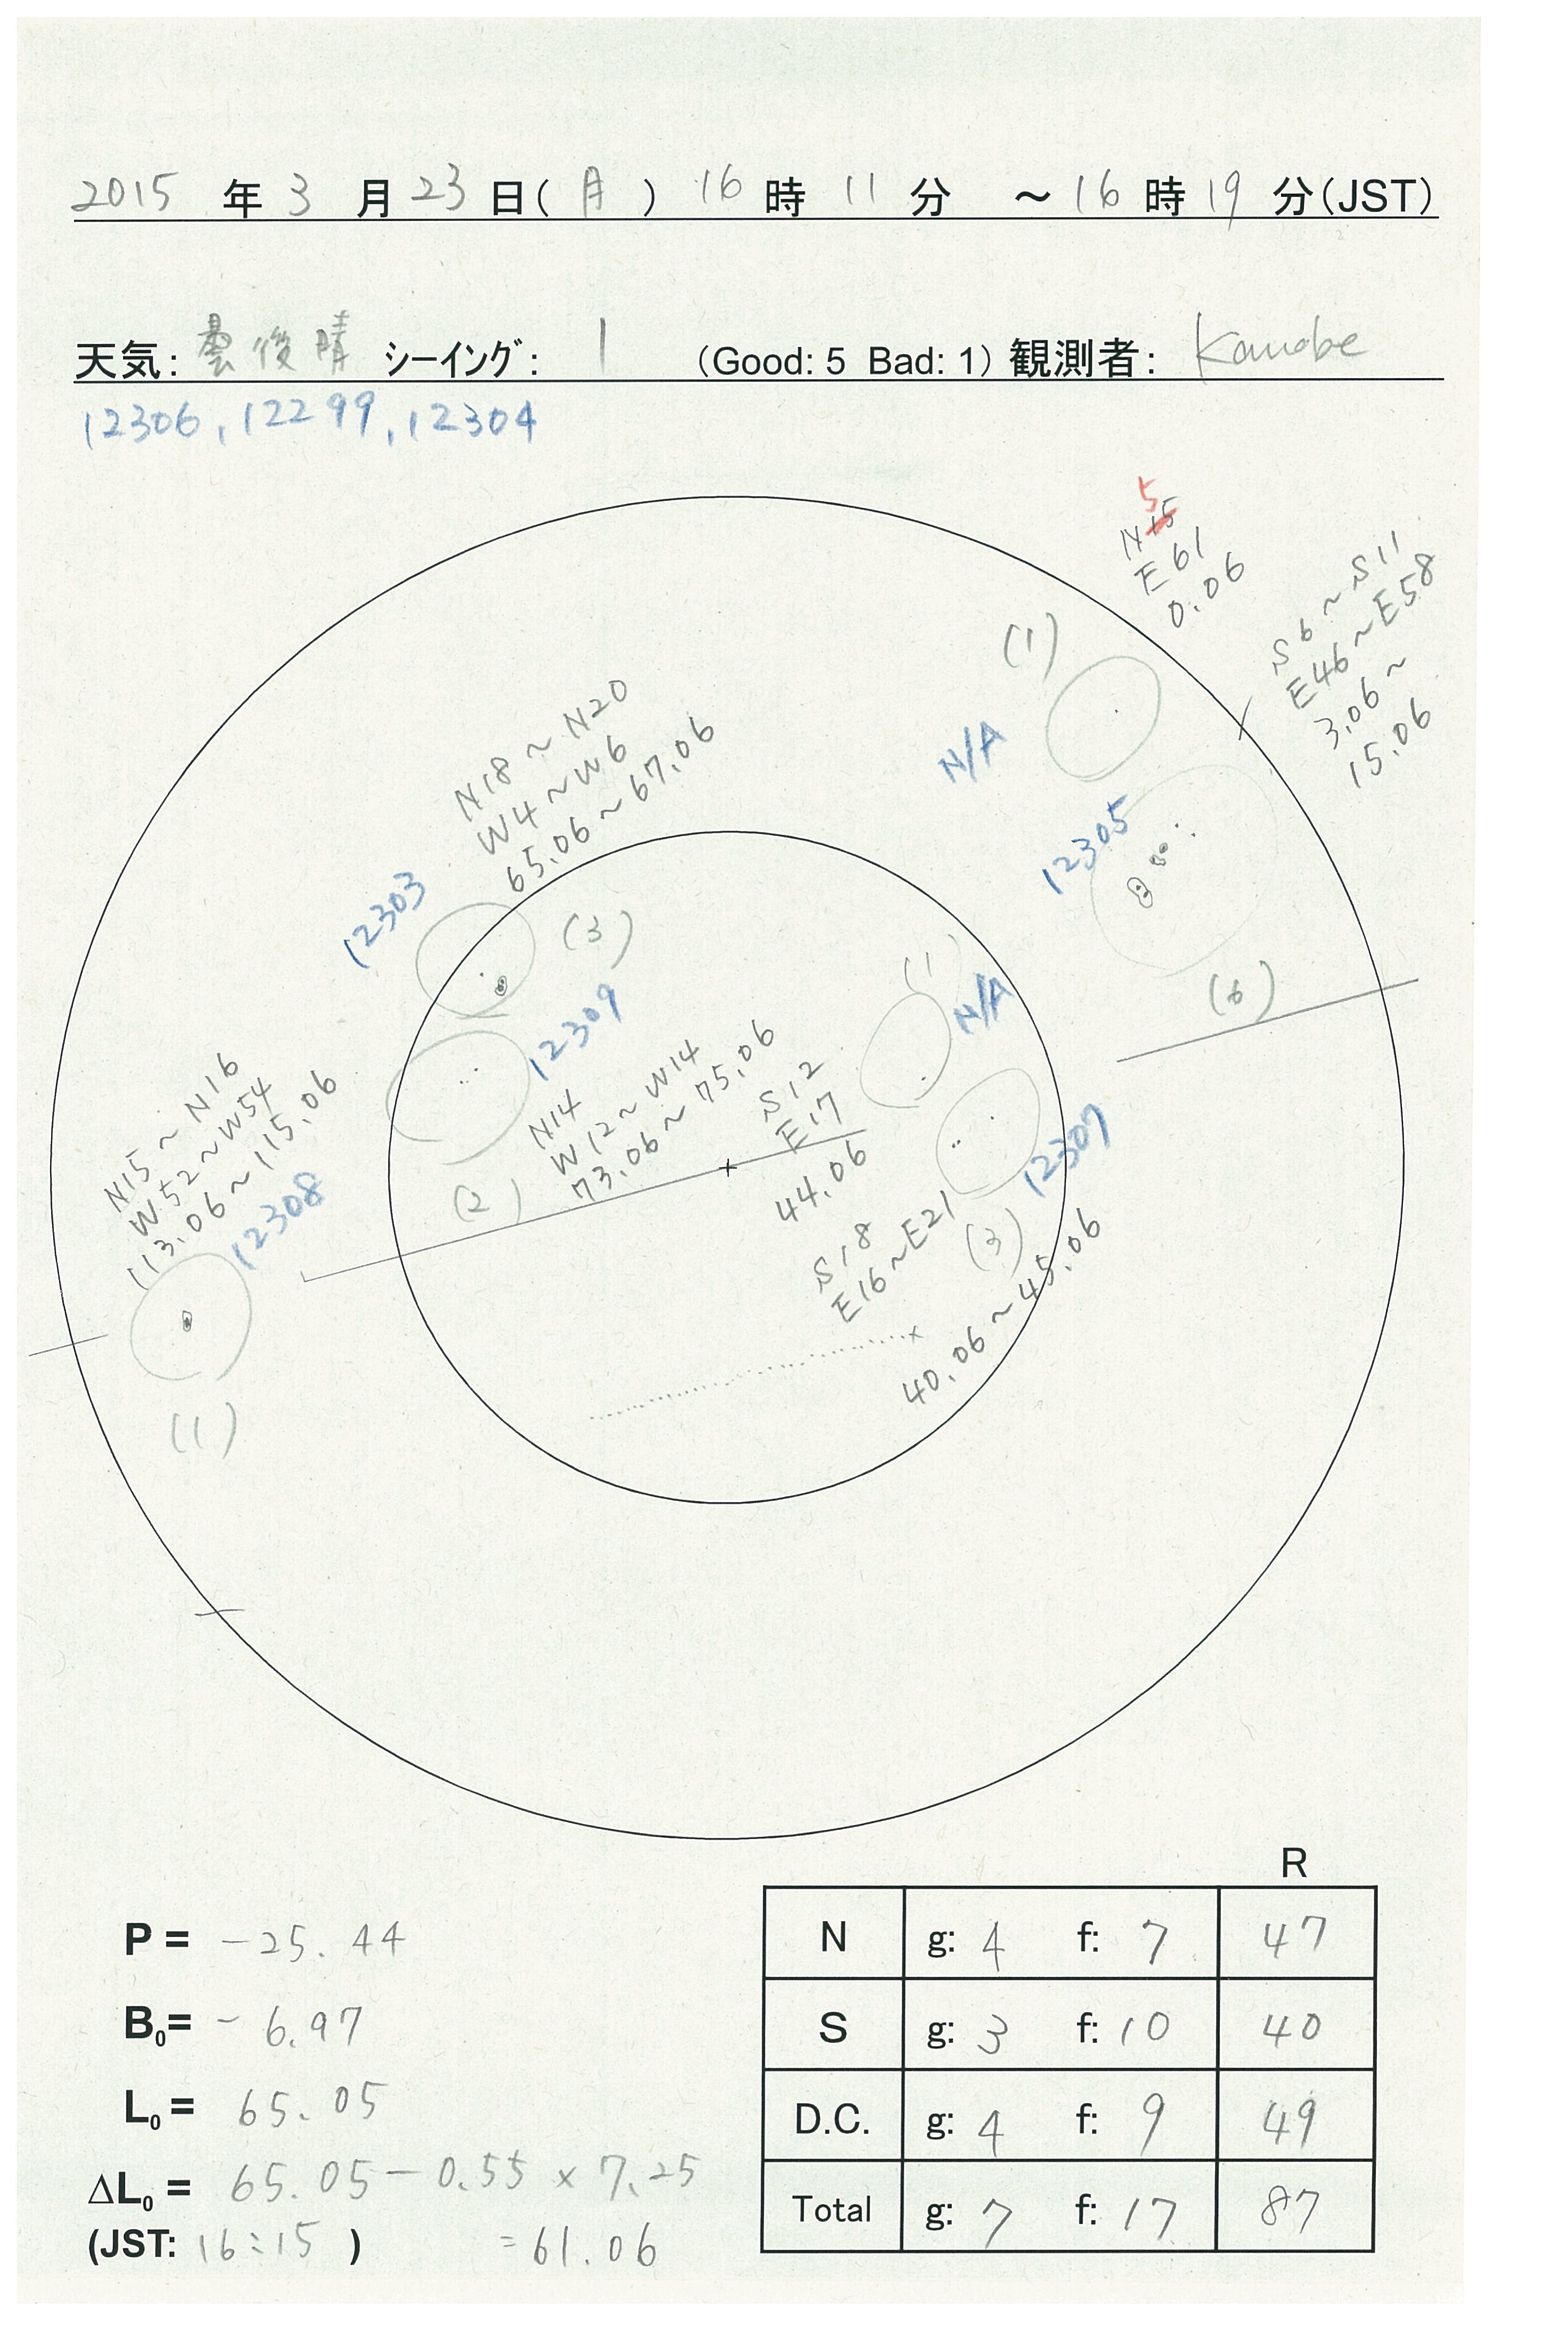 2015 年 3 月 23 日( 月 ) 16 時 11 分 ～ 16 時 19 分(JST)
天気: 曇後晴 シーイング: 1 (Good: 5 Bad: 1) 観測者: Kanabe
12306, 12299, 12304
5
N15
E61
0.06
(1)
N/A
S6~S11
E46~E58
3.06~
15.06
12305
(6)
N18~N20
W4~W6
65.06~67.06
12303
(3)
12309
N14
W12~W14
73.06~75.06
(2)
(1)
N/A
S12
E17
44.06
12307
S18
E16~E21
(3)
40.06~45.06
N15~N16
W52~W54
113.06~115.06
12308
(1)
R
N g: 4 f: 7 47
S g: 3 f: 10 40
D.C. g: 4 f: 9 49
Total g: 7 f: 17 87
P = -25.44
B0= -6.97
L0 = 65.05
ΔL0 = 65.05-0.55×7.25
(JST: 16:15 ) =61.06